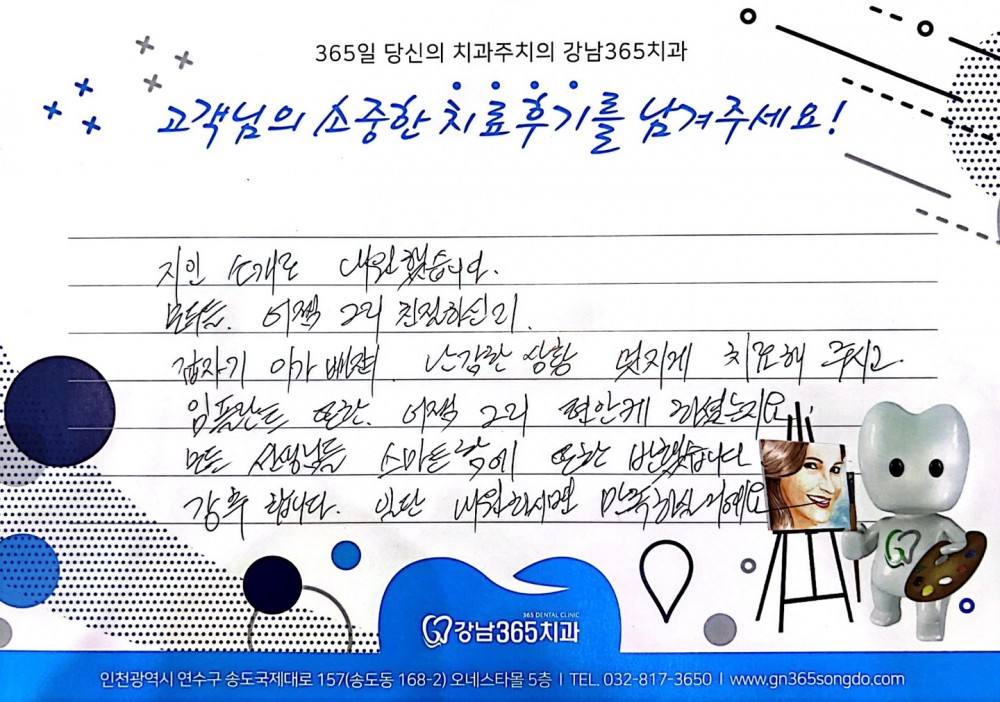 365일 당신의 치과주치의 강남365치과
고객님의 소중한 치료후기를 남겨주세요!
지인 소개로 내원했습니다.
모두들. 어쩜 그리 친절하신지.
갑자기 이가 빠져 난감한 상황 멋지게 치료해 주시고
임플란트 또한. 어쩜 그리 편안케 하셨는지요
모든 선생님들 스마트함에 또한 반했습니다
강추 합니다. 일단 내원하시면 만족하실거예요
365 DENTAL CLINIC
강남365치과
인천광역시 연수구 송도국제대로 157(송도동 168-2) 오네스타몰 5층 I TEL. 032-817-3650 I www.gn365songdo.com